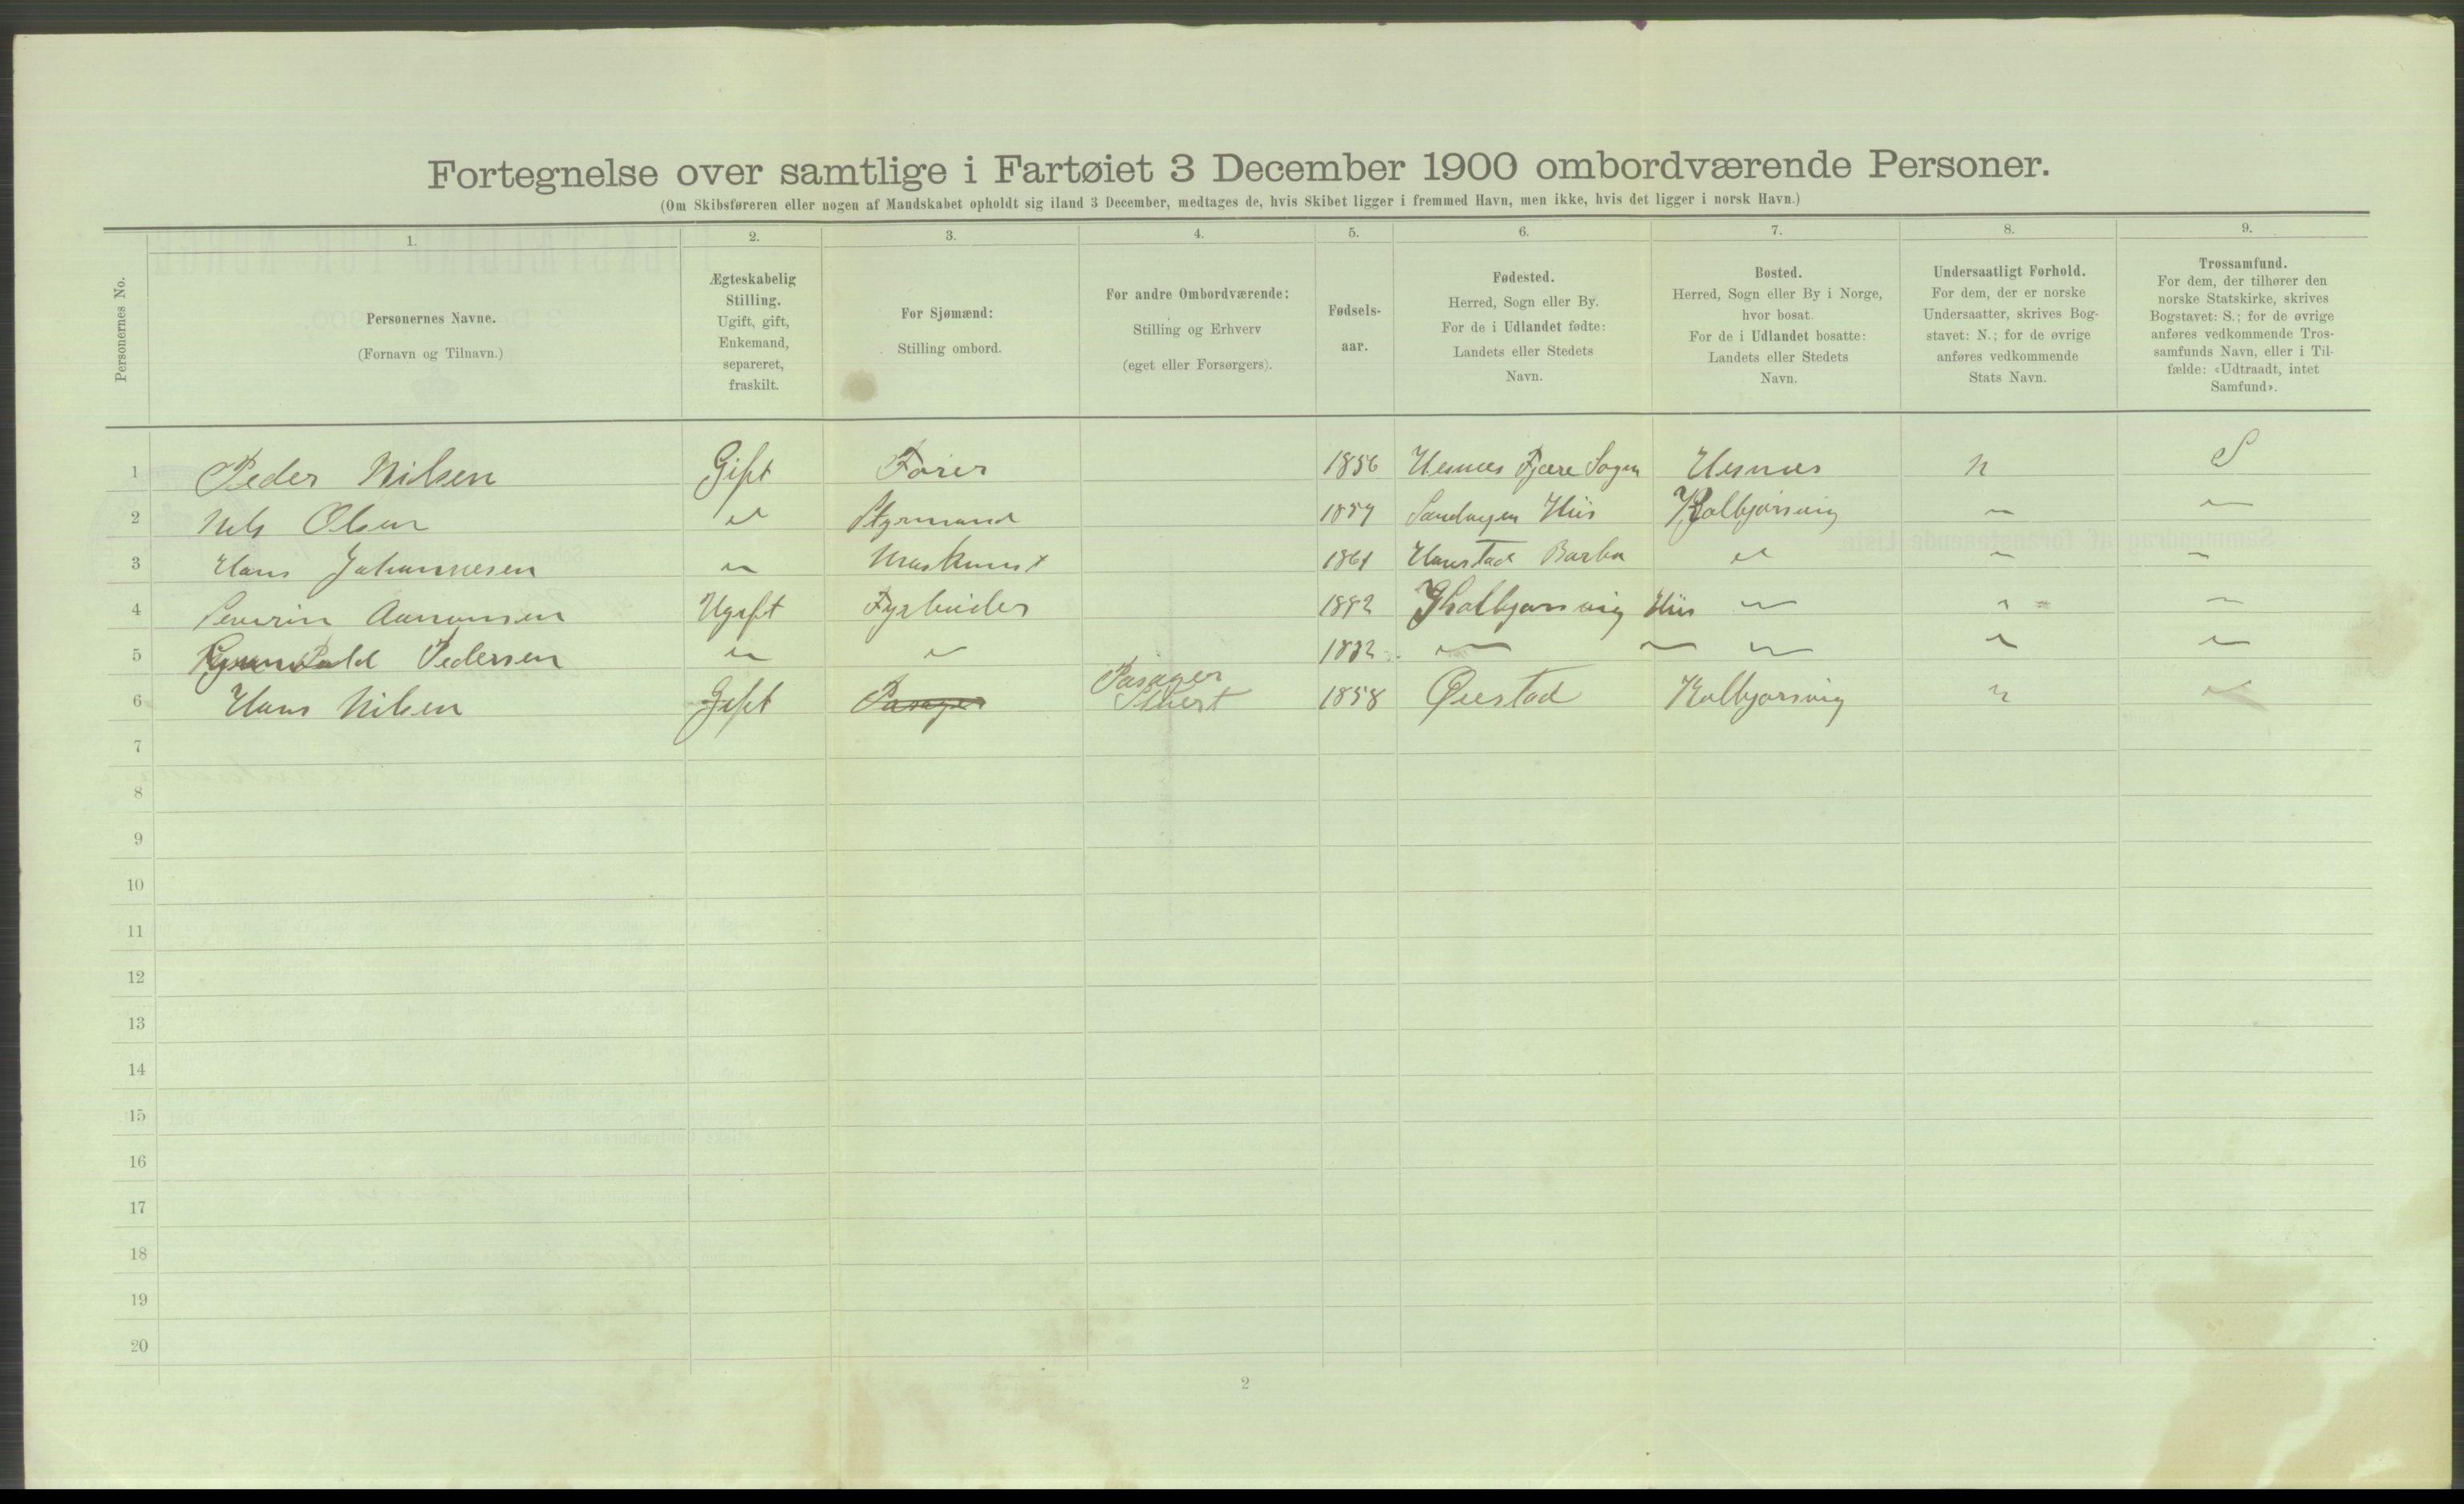 Fortegnelse over samtlige i Fartøiet 3 December 1900 ombordværende Personer.
(Om Skibsføreren eller nogen af Mandskabet opholdt sig iland 3 December, medtages de, hvis Skibet ligger i fremmed Havn, men ikke, hvis det ligger i norsk Havn.)
Personernes No.
1. 2. 3. 4. 5. 6. 7. 8. 9.
Personernes Navne.
(Fornavn og Tilnavn.)
Ægteskabelig
Stilling.
Ugift, gift,
Enkemand,
separeret,
fraskilt.
For Sjømænd:
Stilling ombord.
For andre Ombordværende:
Stilling og Erhverv
(eget eller Forsørgers).
Fødsels-
aar.
Fødested.
Herred, Sogn eller By.
For de i Udlandet fødte:
Landets eller Stedets
Navn.
Bosted.
Herred, Sogn eller By i Norge,
hvor bosat.
For de i Udlandet bosatte:
Landets eller Stedets
Navn.
Undersaatligt Forhold.
For dem, der er norske
Undersaatter, skrives Bog-
stavet: N.; for de øvrige
anføres vedkommende
Stats Navn.
Trossamfund.
For dem, der tilhører den
norske Statskirke, skrives
Bogstavet: S.; for de øvrige
anføres vedkommende Tros-
samfunds Navn, eller i Til-
fælde: «Udtraadt, intet
Samfund».
1 Peder Nilsen Gift Fører 1856 Hesnes Fjære Sogn Hesnes n S
2 Nils Olsen " Styrmand Hiis Kolbjørsvig " "
3 Hans Johannesen " Maskinist 1861 Barbu " " "
4 Severin Aanonsen Ugift Fyrbøder 1882 Kolbjørnsvig Hiis " " "
5 Pedersen " " 1882 " " " " "
6 Hans Nilsen Gift Pasager Pasager 1858 Øiestad Kolbjørsvig n "
7
8
9
10
11
12
13
14
15
16
17
18
19
20
2